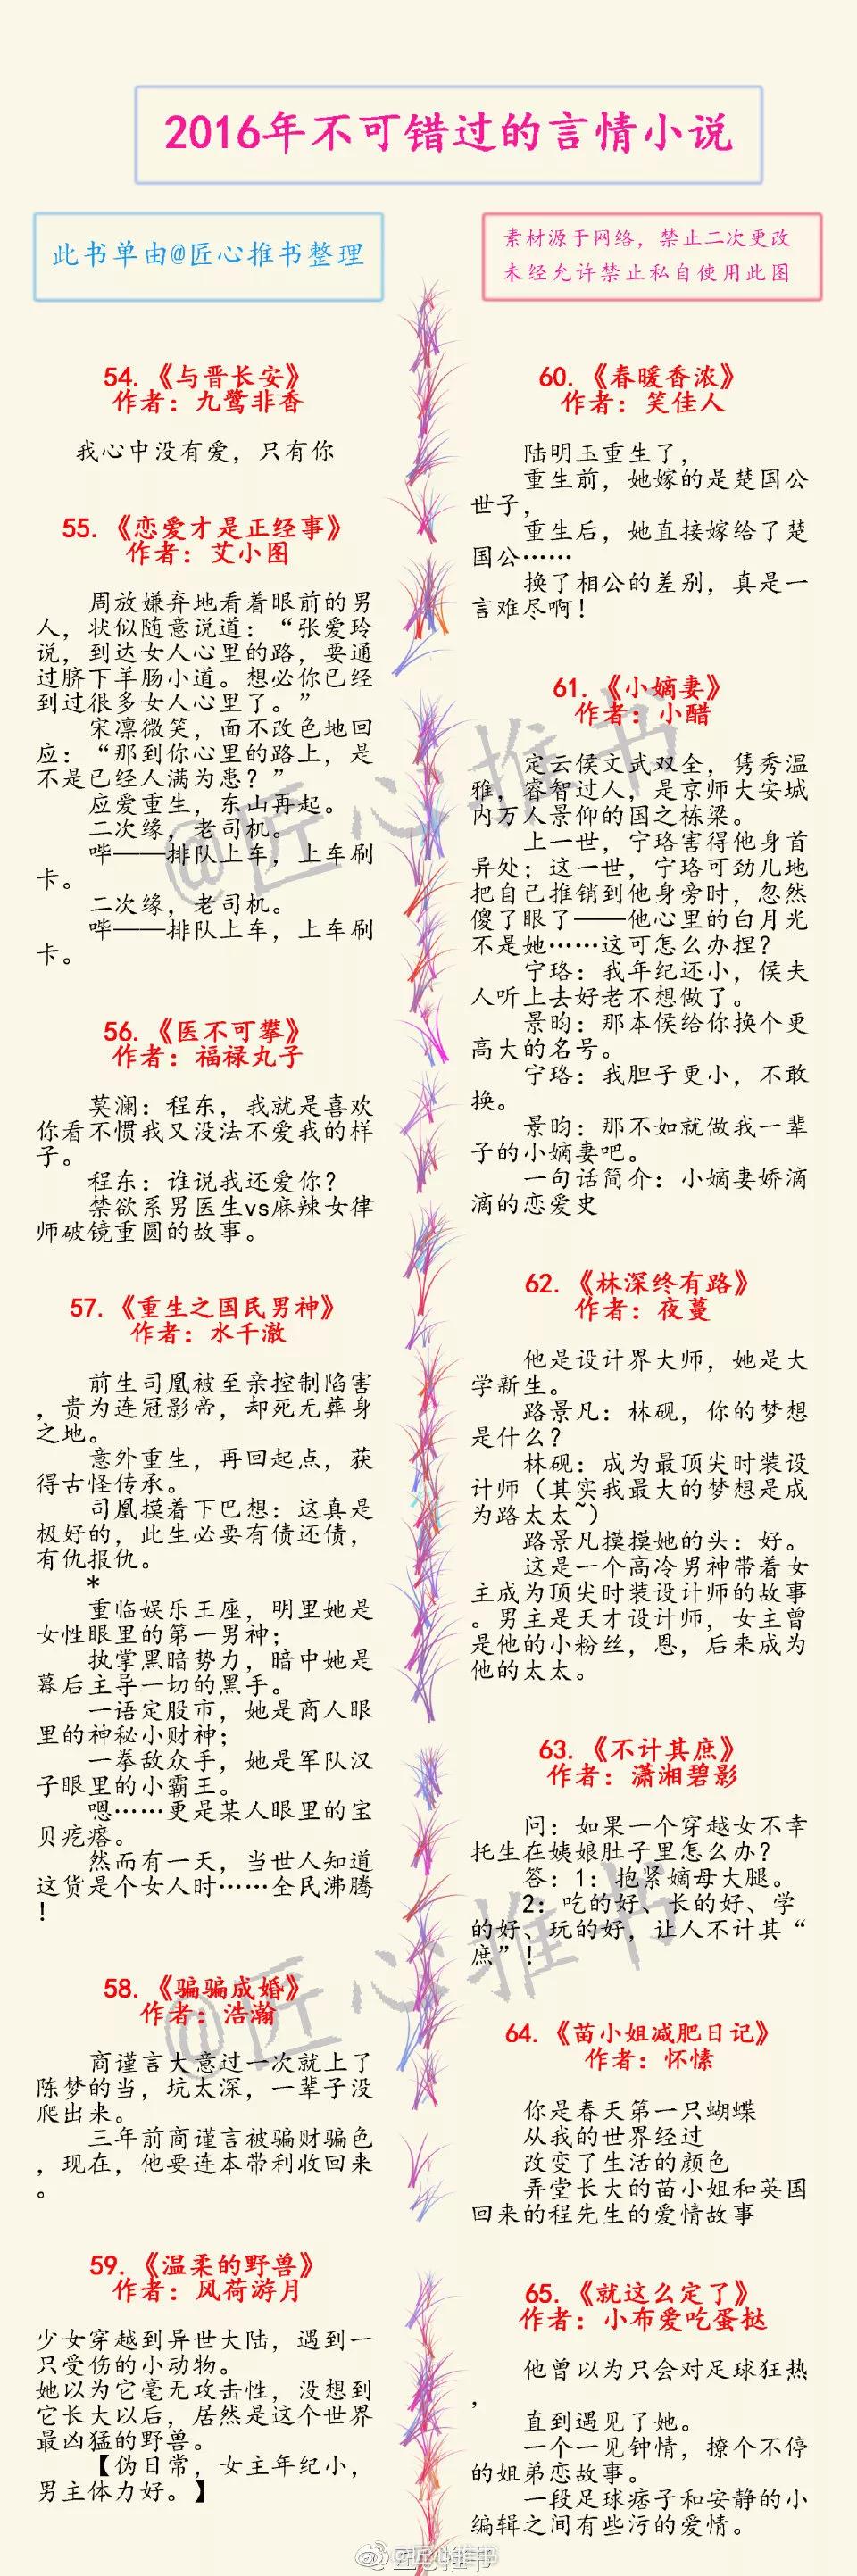 2016年不可错过的言情小说
此书单由@匠心推书整理
素材源于网络，禁止二次更改
未经允许禁止私自使用此图
54.《与晋长安》
作者：九鹭非香
我心中没有爱，只有你
55.《恋爱才是正经事》
作者：艾小图
周放嫌弃地看着眼前的男
人，状似随意说道：“张爱玲
说，到达女人心里的路，要通
过脐下羊肠小道。想必你已经
到过很多女人心里了。”
宋凛微笑，面不改色地回
应：“那到你心里的路上，是
不是已经人满为患？”
应爱重生，东山再起。
二次缘，老司机。
哔——排队上车，上车刷
卡。
二次缘，老司机。
哔——排队上车，上车刷
卡。
56.《医不可攀》
作者：福禄丸子
莫澜：程东，我就是喜欢
你看不惯我又没法不爱我的样
子。
程东：谁说我还爱你？
禁欲系男医生vs麻辣女律
师破镜重圆的故事。
57.《重生之国民男神》
作者：水千澈
前生司凰被至亲控制陷害
，贵为连冠影帝，却死无葬身
之地。
意外重生，再回起点，获
得古怪传承。
司凰摸着下巴想：这真是
极好的，此生必要有债还债，
有仇报仇。
*
重临娱乐王座，明里她是
女性眼里的第一男神；
执掌黑暗势力，暗中她是
幕后主导一切的黑手。
一语定股市，她是商人眼
里的神秘小财神；
一拳敌众手，她是军队汉
子眼里的小霸王。
嗯……更是某人眼里的宝
贝疙瘩。
然而有一天，当世人知道
这货是个女人时……全民沸腾
！
58.《骗骗成婚》
作者：浩瀚
商谨言大意过一次就上了
陈梦的当，坑太深，一辈子没
爬出来。
三年前商谨言被骗财骗色
，现在，他要连本带利收回来
。
59.《温柔的野兽》
作者：风荷游月
少女穿越到异世大陆，遇到一
只受伤的小动物。
她以为它毫无攻击性，没想到
它长大以后，居然是这个世界
最凶猛的野兽。
【伪日常，女主年纪小，
男主体力好。】
60.《春暖香浓》
作者：笑佳人
陆明玉重生了，
重生前，她嫁的是楚国公
世子，
重生后，她直接嫁给了楚
国公……
换了相公的差别，真是一
言难尽啊！
61.《小嫡妻》
作者：小醋
定云侯文武双全，隽秀温
雅，睿智过人，是京师大安城
内万人景仰的国之栋梁。
上一世，宁珞害得他身首
异处；这一世，宁珞可劲儿地
把自己推销到他身旁时，忽然
傻了眼了——他心里的白月光
不是她……这可怎么办捏？
宁珞：我年纪还小，侯夫
人听上去好老不想做了。
景昀：那本侯给你换个更
高大的名号。
宁珞：我胆子更小，不敢
换。
景昀：那不如就做我一辈
子的小嫡妻吧。
一句话简介：小嫡妻娇滴
滴的恋爱史
62.《林深终有路》
作者：夜蔓
他是设计界大师，她是大
学新生。
路景凡：林砚，你的梦想
是什么？
林砚：成为最顶尖时装设
计师（其实我最大的梦想是成
为路太太~）
路景凡摸摸她的头：好。
这是一个高冷男神带着女
主成为顶尖时装设计师的故事
。男主是天才设计师，女主曾
是他的小粉丝，恩，后来成为
他的太太。
63.《不计其庶》
作者：潇湘碧影
问：如果一个穿越女不幸
托生在姨娘肚子里怎么办？
答：1：抱紧嫡母大腿。
2：吃的好、长的好、学
的好、玩的好，让人不计其“
庶”！
64.《苗小姐减肥日记》
作者：怀愫
你是春天第一只蝴蝶
从我的世界经过
改变了生活的颜色
弄堂长大的苗小姐和英国
回来的程先生的爱情故事
65.《就这么定了》
作者：小布爱吃蛋挞
他曾以为只会对足球狂热
，
直到遇见了她。
一个一见钟情，撩个不停
的姐弟恋故事。
一段足球痞子和安静的小
编辑之间有些污的爱情。
@匠心推书
@匠心推书
@匠心推书
匠心推书